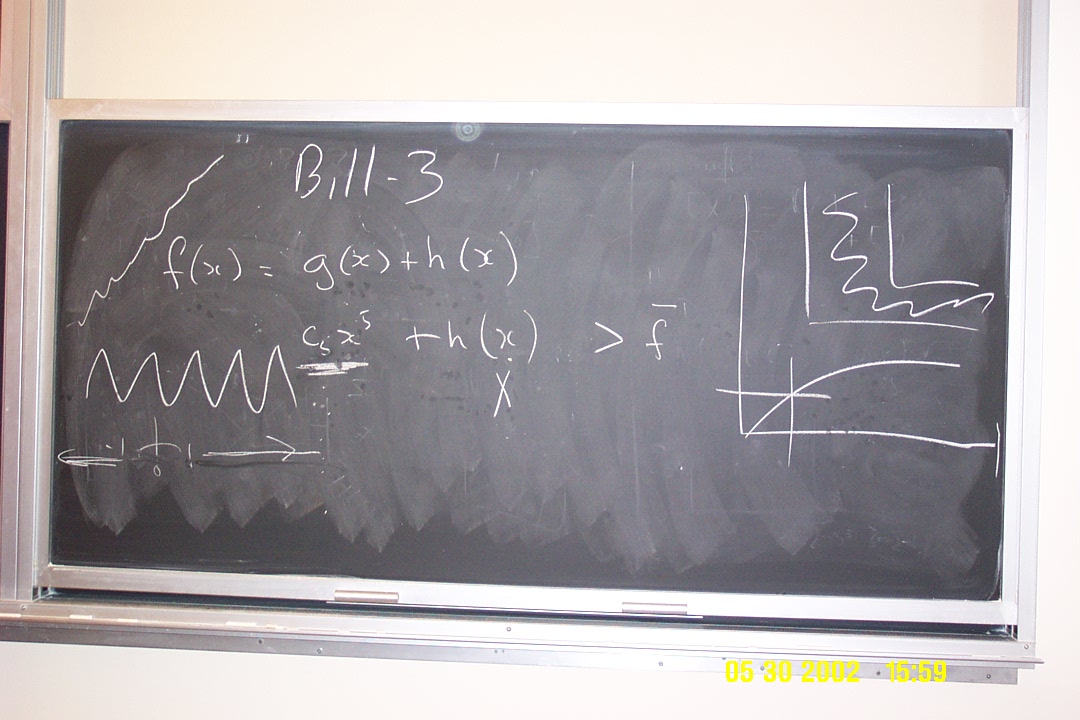 Bill-3
f(x) = g(x) + h(x)
c₅x⁵ + h(x) > f̄
X
0
05 30 2002 15:59